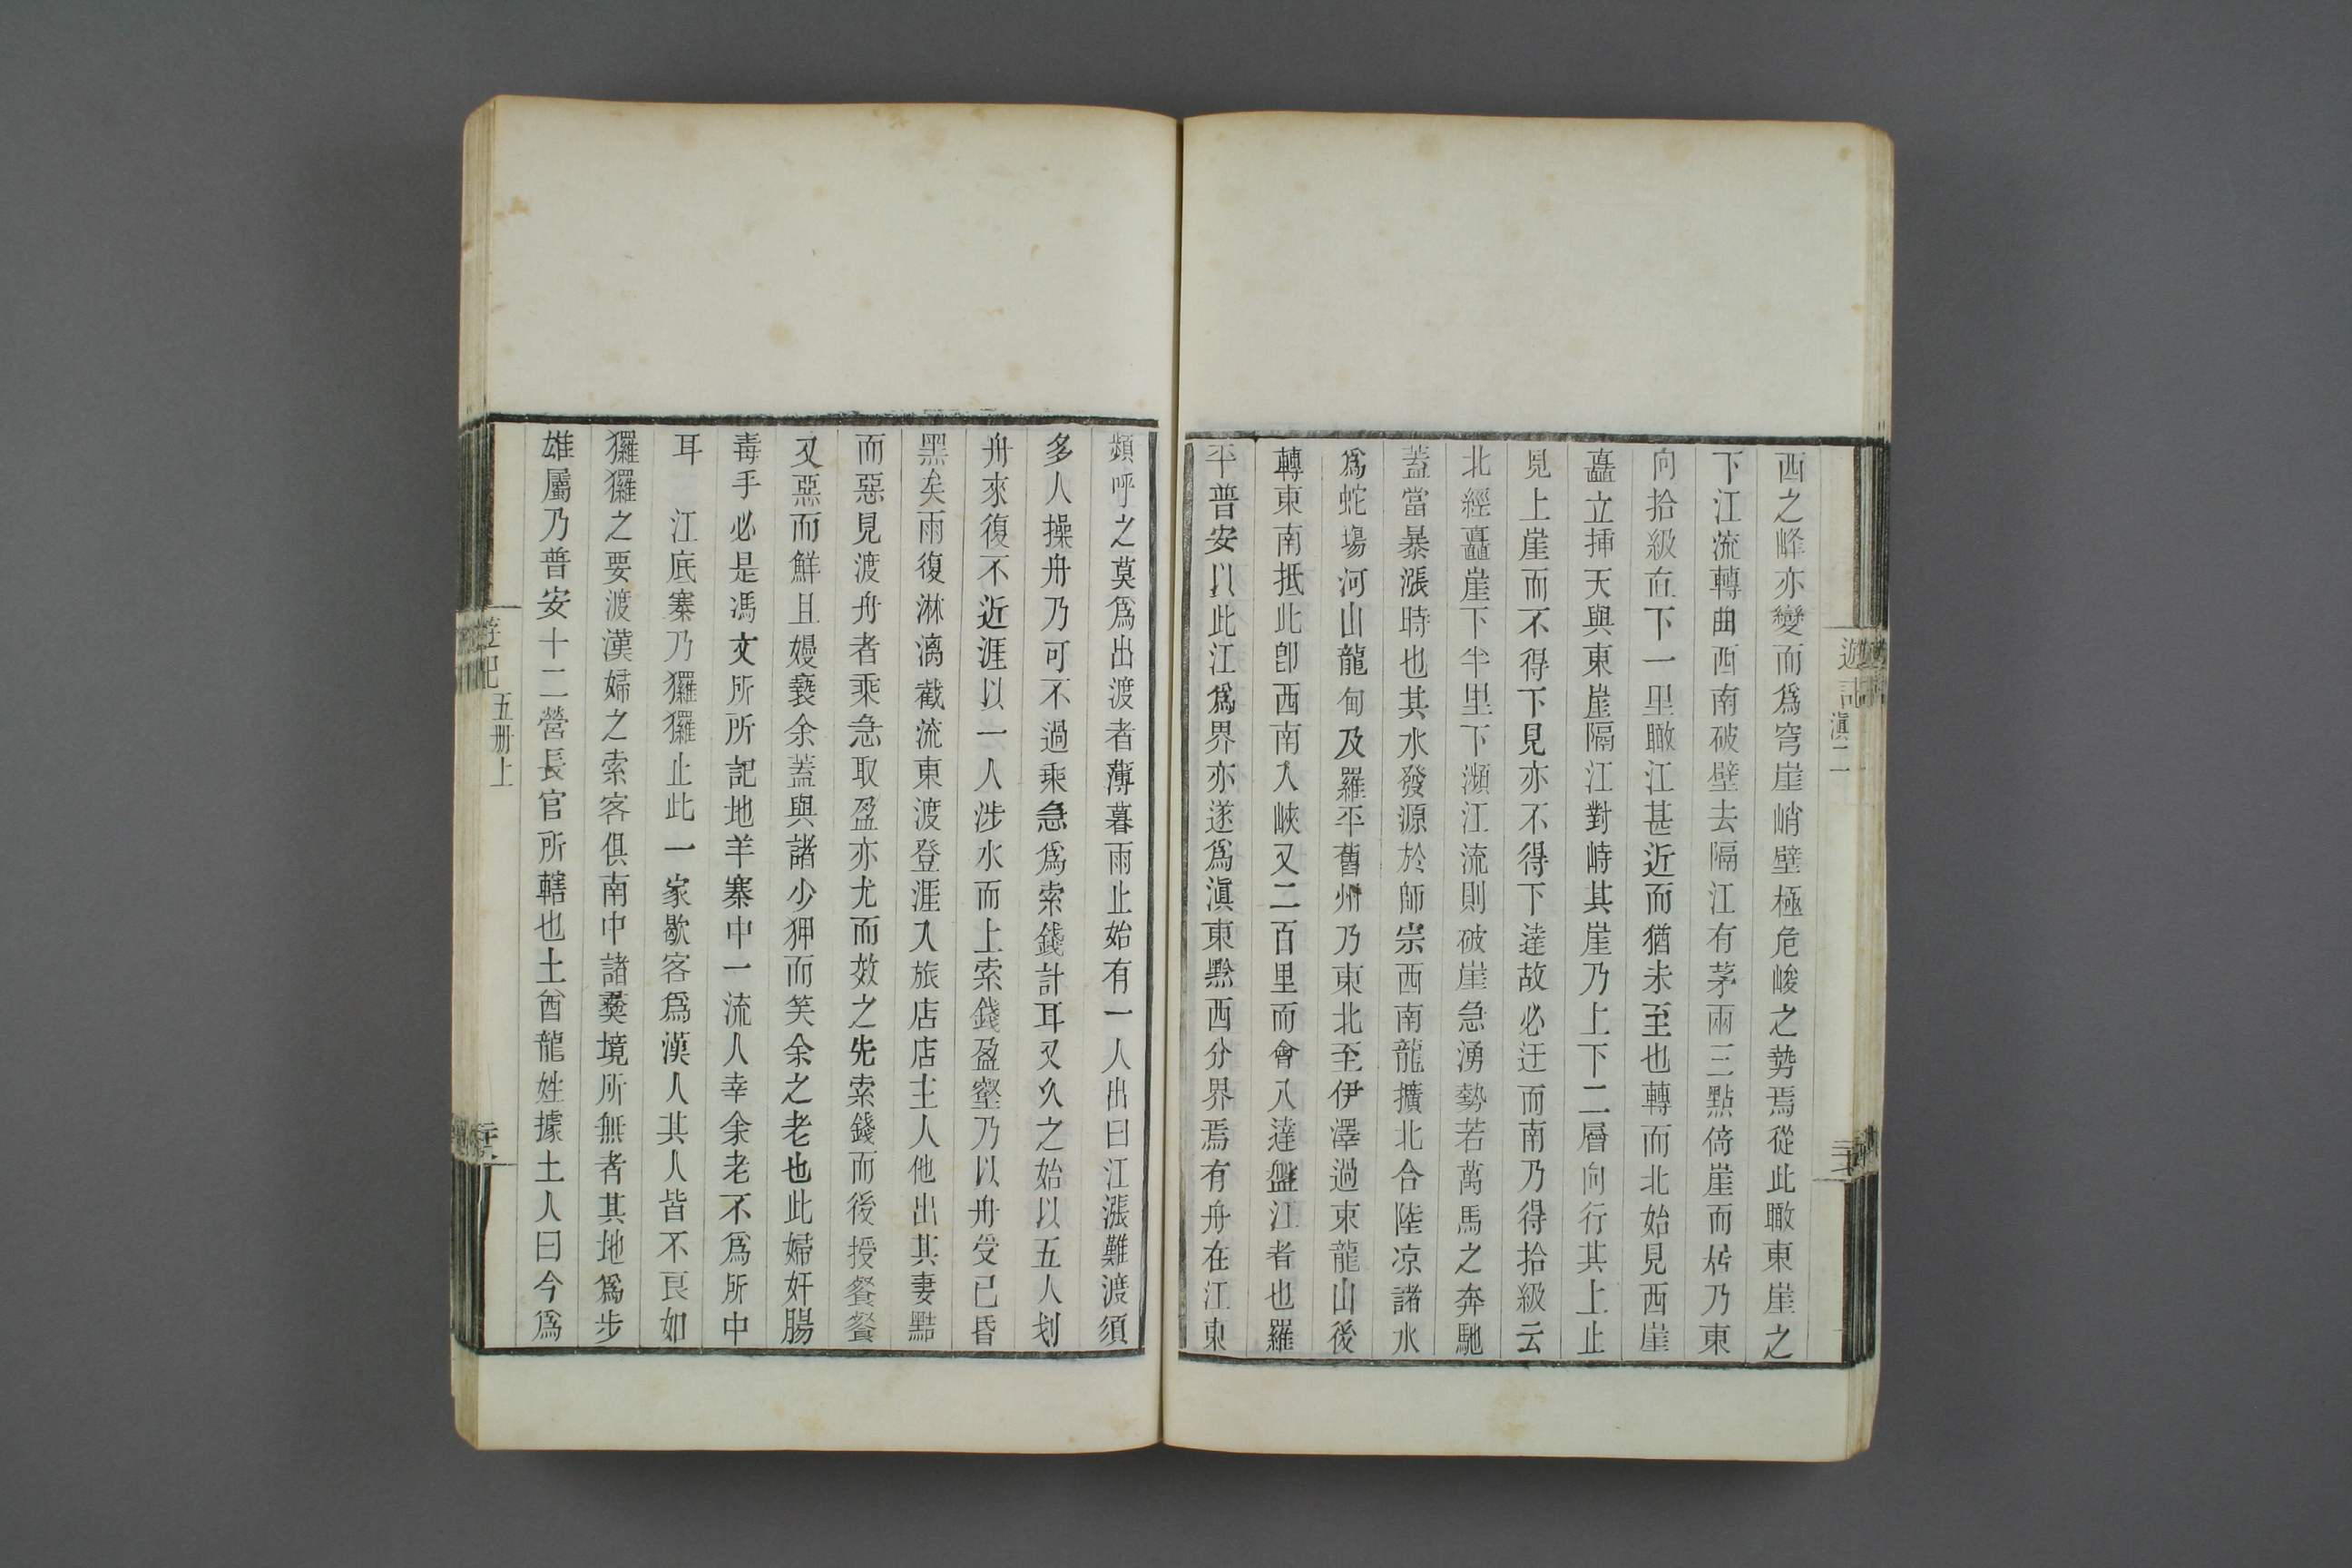 遊記
滇二
三十
西之峰亦變而爲穹崖峭壁極危峻之勢焉從此瞰東崖之
下江流轉曲西南破壁去隔江有茅兩三點倚崖而居乃東
向拾級直下一里瞰江甚近而猶未至也轉而北始見西崖
矗立揷天與東崖隔江對峙其崖乃上下二層向行其上止
見上崖而不得下見亦不得下達故必迂而南乃得拾級云
北經矗崖下半里下瀕江流則破崖急湧勢若萬馬之奔馳
蓋當暴漲時也其水發源於師宗西南龍擴北合陸凉諸水
爲蛇塲河山龍甸及羅平舊州乃東北至伊澤過束龍山後
轉東南抵此卽西南入峽又二百里而會八達盤江者也羅
平普安以此江爲界亦遂爲滇東黔西分界焉有舟在江東
頻呼之莫爲出渡者薄暮雨止始有一人出曰江漲難渡須
多人操舟乃可不過乘急爲索錢計耳又久之始以五人划
舟來復不近涯以一人涉水而上索錢盈壑乃以舟受已昏
黑矣雨復淋漓截流東渡登涯入旅店店主人他出其妻黠
而惡見渡舟者乘急取盈亦尤而效之先索錢而後授餐餐
又惡而鮮且嫚褻余蓋與諸少狎而笑余之老也此婦奸腸
毒手必是馮文所所記地羊寨中一流人幸余老不爲所中
耳　江底寨乃玀玀止此一家歇客爲漢人其人皆不良如
玀玀之要渡漢婦之索客俱南中諸彝境所無者其地爲步
雄屬乃普安十二營長官所轄也土酋龍姓據土人曰今爲
五册上